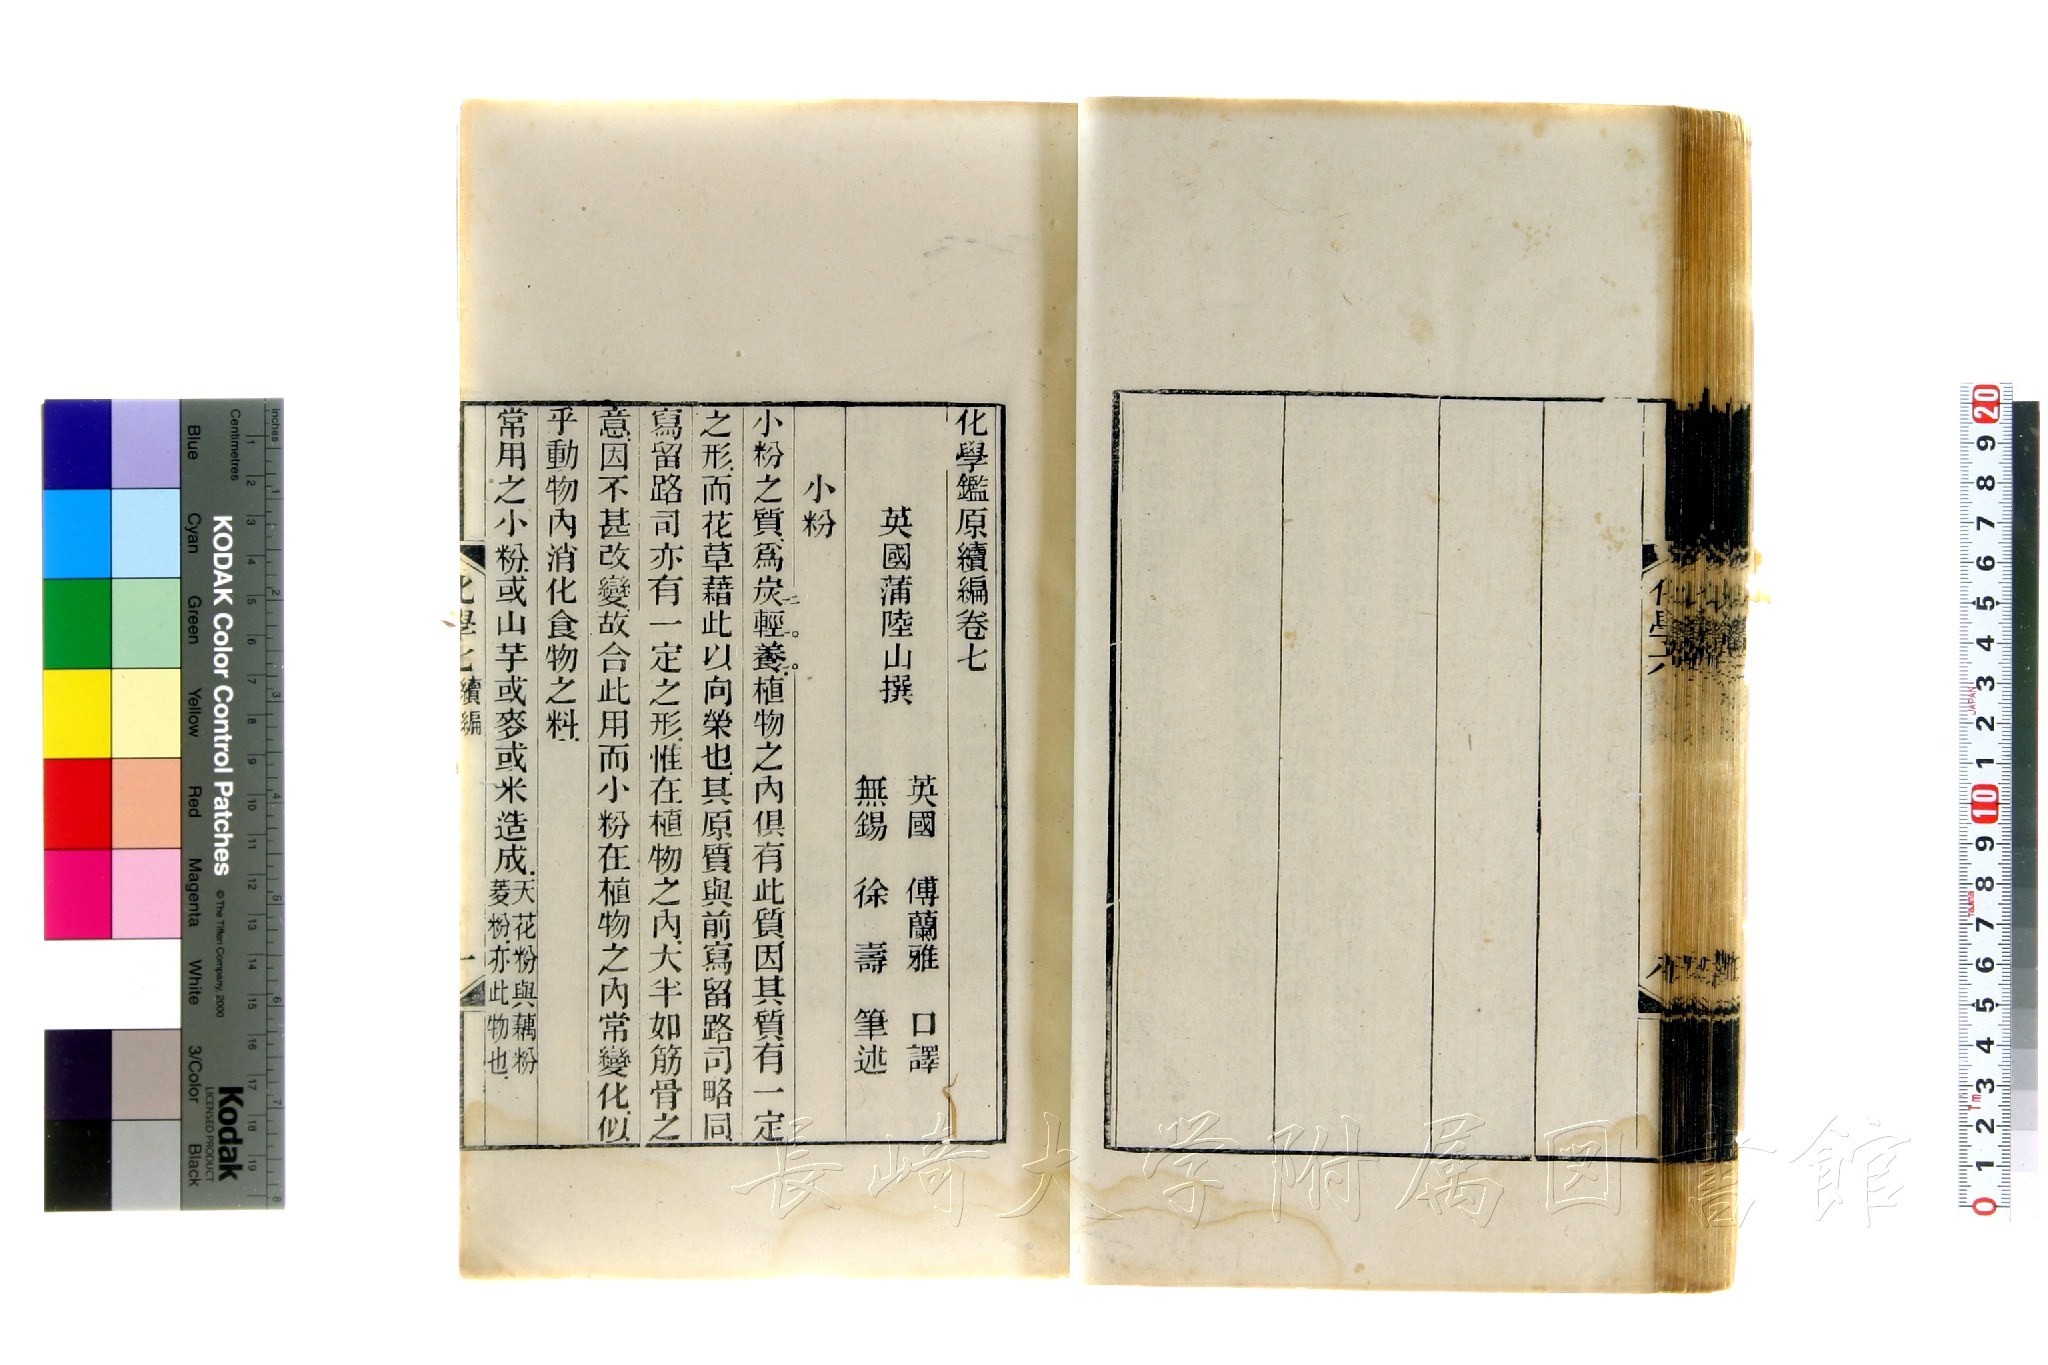 化學鑑原續編卷七
英國 傅蘭雅 口譯
英國蒲陸山撰
無錫 徐壽 筆述
小粉
小粉之質爲炭輕養植物之內俱有此質因其質有一定
之形而花草藉此以向榮也其原質與前寫留路司略同
寫留路司亦有一定之形惟在植物之內大半如筋骨之
意因不甚改變故合此用而小粉在植物之內常變化似
乎動物內消化食物之料
常用之小粉或山芋或麥或米造成天花粉與藕粉
菱粉亦此物也
化學七 續編
一
化學六
長崎大学附属図書館
KODAK Color Control Patches
© The Tiffen Company, 2000
Kodak
LICENSED PRODUCT
Inches
Centimetres
Blue Cyan Green Yellow Red Magenta White 3/Color Black
1 2 3 4 5 6 7 8 9 10 11 12 13 14 15 16 17 18 19
1 2 3 4 5 6 7 8
20 9 8 7 6 5 4 3 2 1 10 9 8 7 6 5 4 3 2 1 0
JAPAN